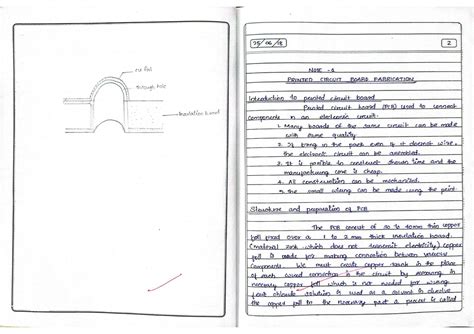 cu foil
through hole
Insulation board
25/06/18
2
NOTE -1
PRINTED CIRCUIT BOARD FABRICATION
Introduction to printed circuit board
Printed circuit board (PCB) used to connect
components in an electronic circuit.
1. Many boards of the same circuit can be made
with same quality
2. If bring in the path even if it doesnot wire,
the electronic circuit can be
3. It is posible to construct shown line and the
manufacturing cone is cheap.
4. All construction can be mechanized.
5. the small wiring can be made using the print.
Structure and preparation of PCB
The PCB consist of 30 to 40mm thin copper
foil fixed over a 1 to 2 mm thick insulation board.
(material which does not transmit electricity) copper
foil is made for making connection between various
components. We must create copper track in the place
of each wired connection in the circuit by removing
necessary copper foil which is not needed for wiring
solution is used as a solvent to dissolve
the copper foil in the necessary part a process is called